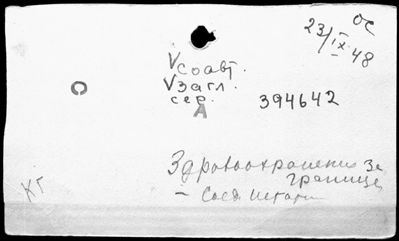 ОС
23/IX-48
Vсоавт.
Vзагл.
сер.
А
394642
Здравоохранение за
границей
– Соед. штаты
КГ